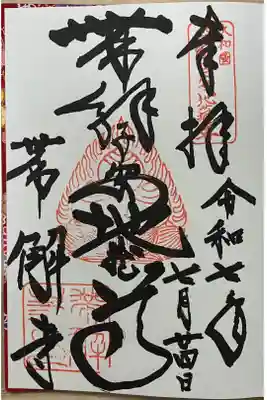 大和國
奉拝
令和七年
七月廿四日
帯解子安地蔵尊
帯解寺